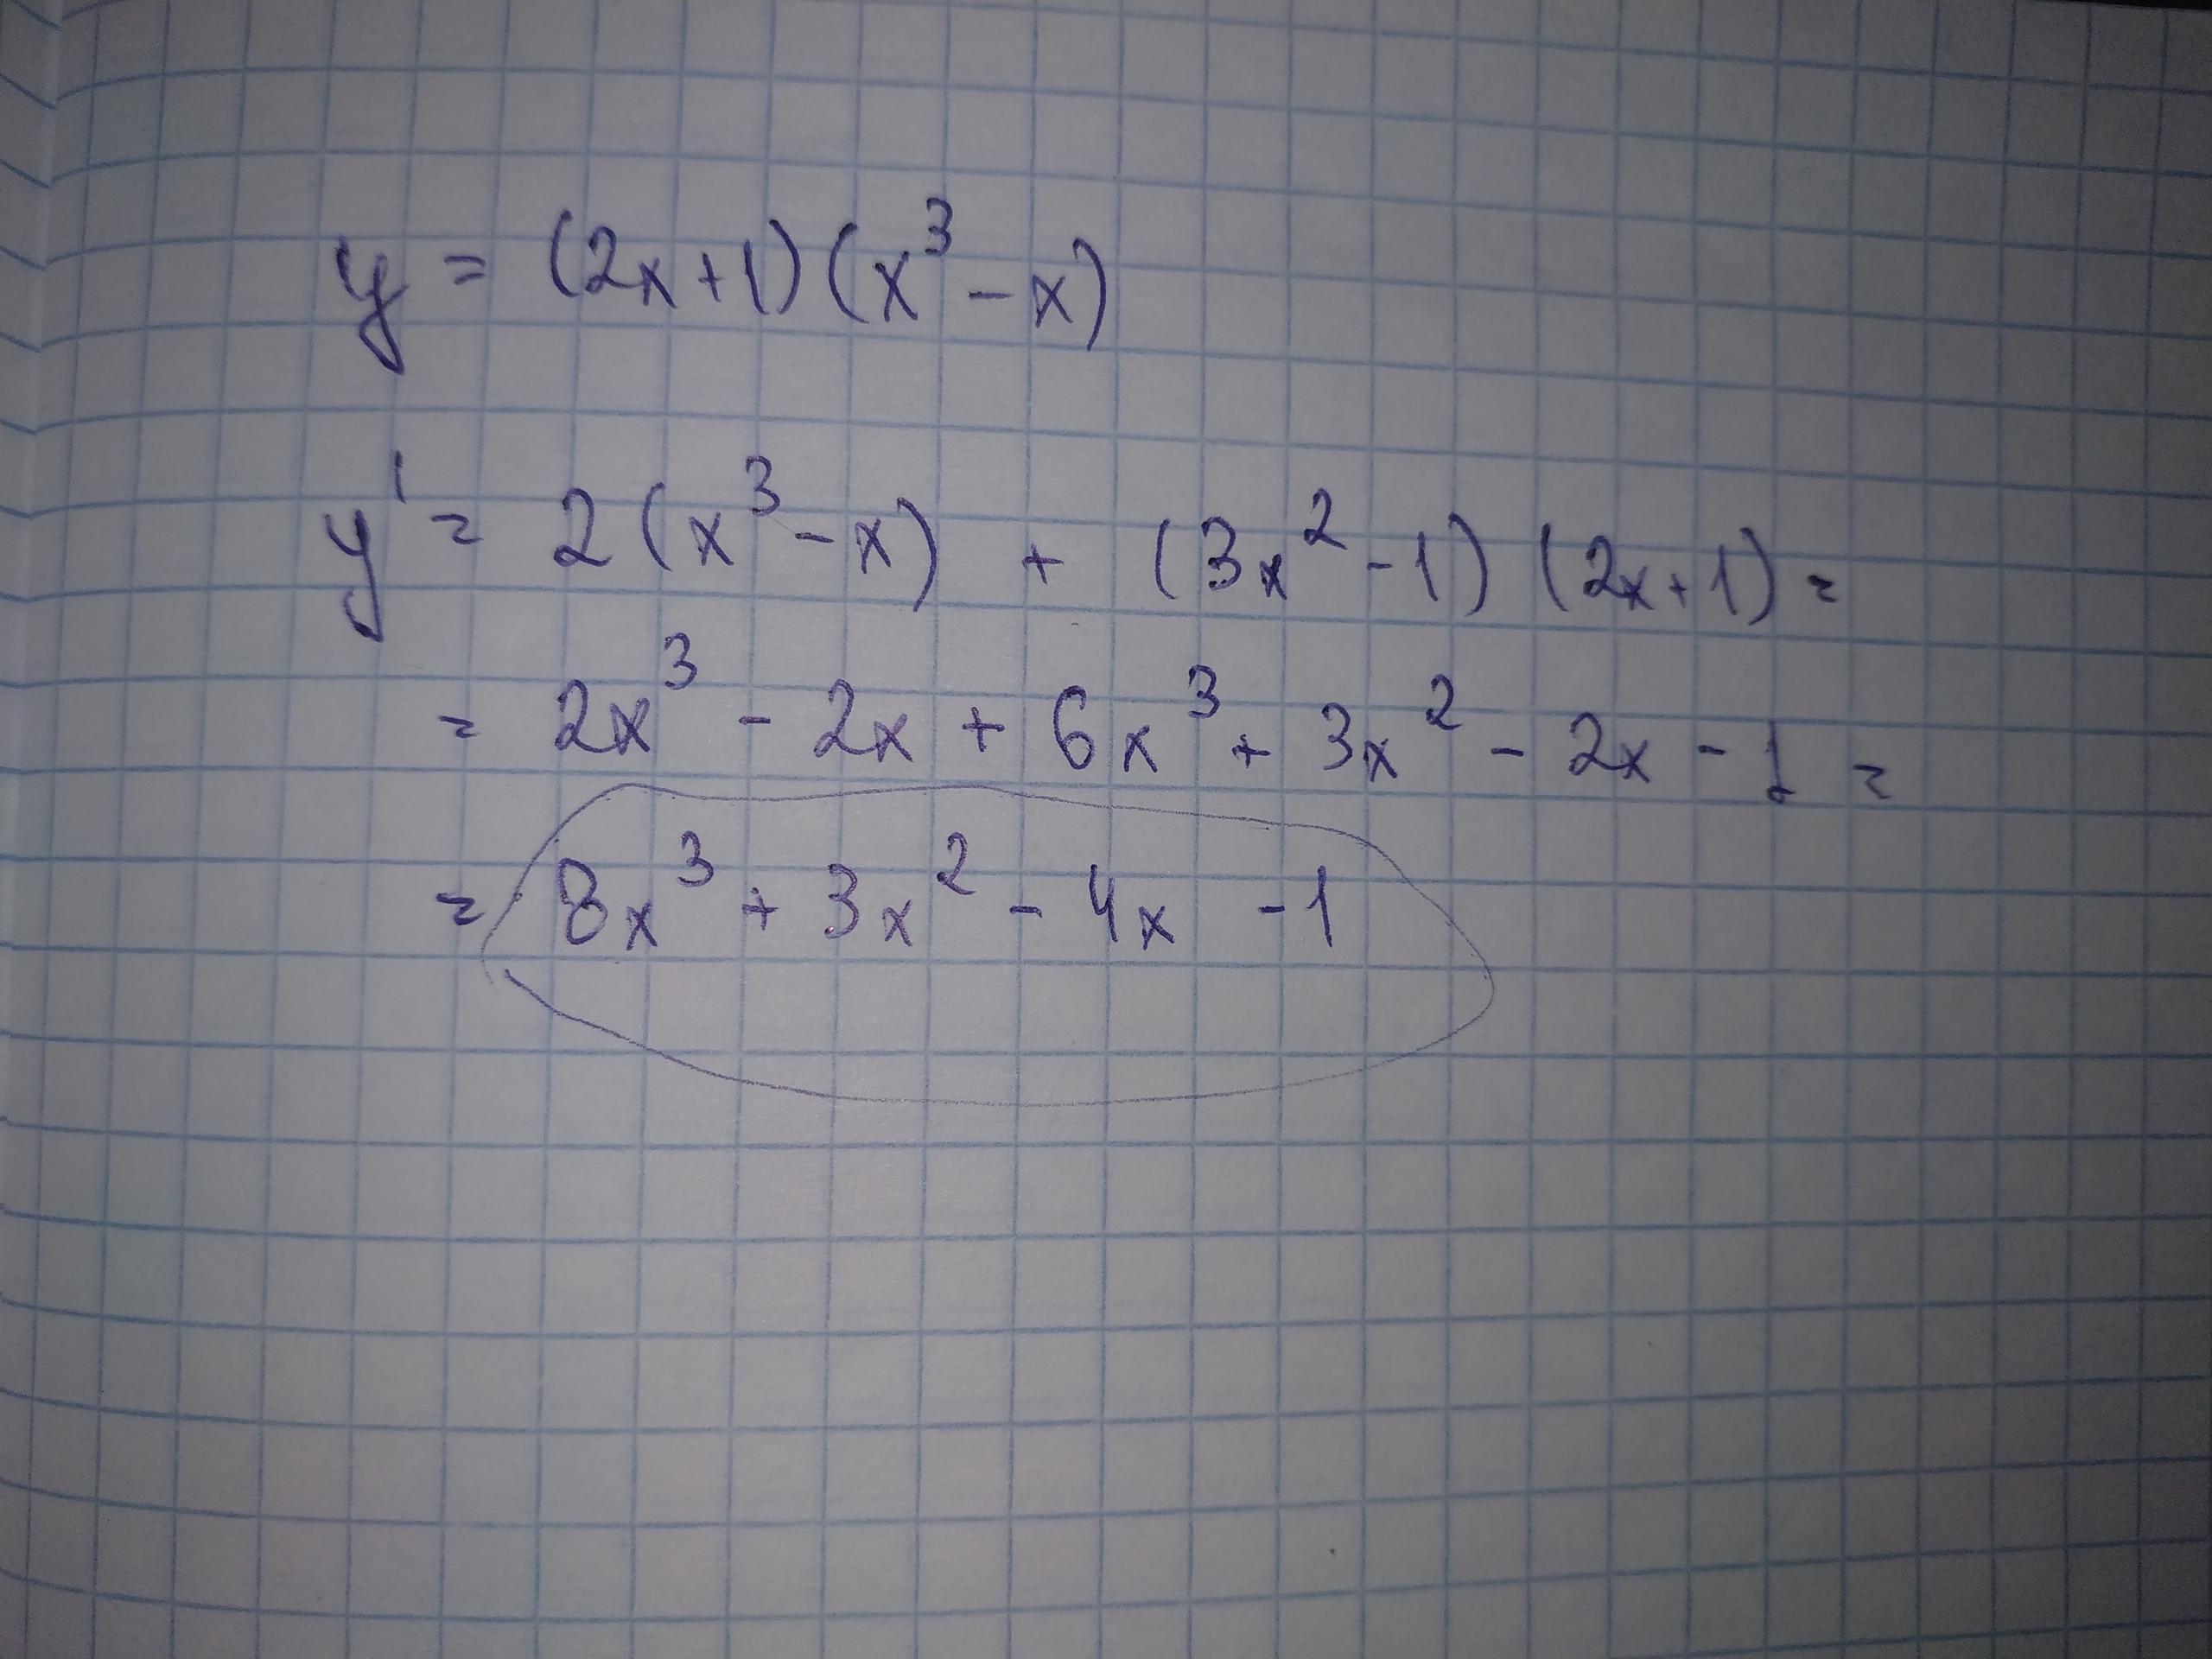 y = (2x+1)(x³-x)
y' = 2(x³-x) + (3x²-1)(2x+1) =
= 2x³ - 2x + 6x³ + 3x² - 2x - 1 =
= 8x³ + 3x² - 4x - 1